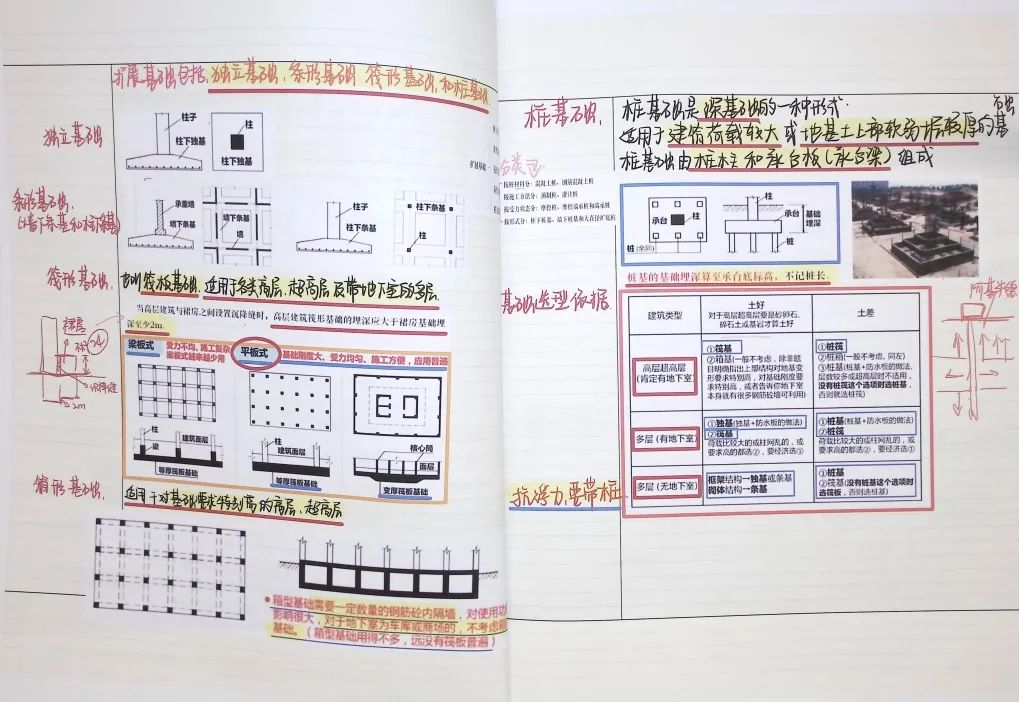 扩展基础包括：独立基础、条形基础、筏形基础、和桩基础
独立基础
柱子
柱下独基
柱
柱下独基
条形基础
承重墙
墙下条基
墙下条基
墙
柱子
柱下条基
柱下条基
柱
筏形基础
适用于各类高层、超高层及带地下室的多层。
当高层建筑与裙房之间设置沉降缝时，高层建筑筏形基础的埋深应大于裙房基础埋
深至少2m。
裙房
2m
梁板式
受力不均、施工复杂
梁板式越来越少用
平板式
基础刚度大、受力均匀、施工方便，应用普遍
柱
梁
建筑面层
等厚筏板基础
柱
建筑面层
等厚筏板基础
核心筒
面层
变厚筏板基础
箱形基础
适用于对基础要求特别高的高层、超高层
箱型基础需要一定数量的钢筋砼内隔墙，对使用功
影响很大，对于地下室为车库或商场的，不考虑箱
基础。（箱型基础用得不多，远没有筏板普遍）
桩基础
桩基础是深基础的一种形式。
适用于建筑荷载较大或地基土上部软弱层较厚的基础
桩基础由桩柱和承台板（承台梁）组成
分类
按桩材料分：混凝土桩、钢筋混凝土桩
按施工方法分：预制桩、灌注桩
按受力状态分：摩擦桩、摩擦端承桩和端承桩
承台
柱
桩（余同）
柱
承台
基础
埋深
桩
桩基的基础埋深算至承台底标高，不记桩长。
基础选型依据
建筑类型
土好
对于高层超高层要是砂卵石、
碎石土或基岩才算土好
土差
高层超高层
（肯定有地下室）
①筏基
②箱基（一般不考虑，除非题
目明确指出上部结构对地基变
形要求特别高，对基础刚度要
求特别高，或者告诉你地下室
本身就有很多钢筋砼墙可利用）
①桩筏
②桩箱（一般不考虑，同左）
③桩基（桩基+防水板的做法，
层数较多或超高层时不适用，
没有桩筏这个选项时选桩基，
否则就选桩筏）
多层（有地下室）
①独基（独基+防水板的做法）
②筏基
荷载比较大的或柱网乱的，或
要求高的都选②，要经济选①
①桩基（桩基+防水板的做法）
②桩筏
荷载比较大的或柱网乱的，或
要求高的都选②，要经济选①
多层（无地下室）
框架结构→独基或条基
砌体结构→条基
①桩基
②筏基（没有桩基这个选项时
选筏板，否则选桩基）
抗浮力，要带桩